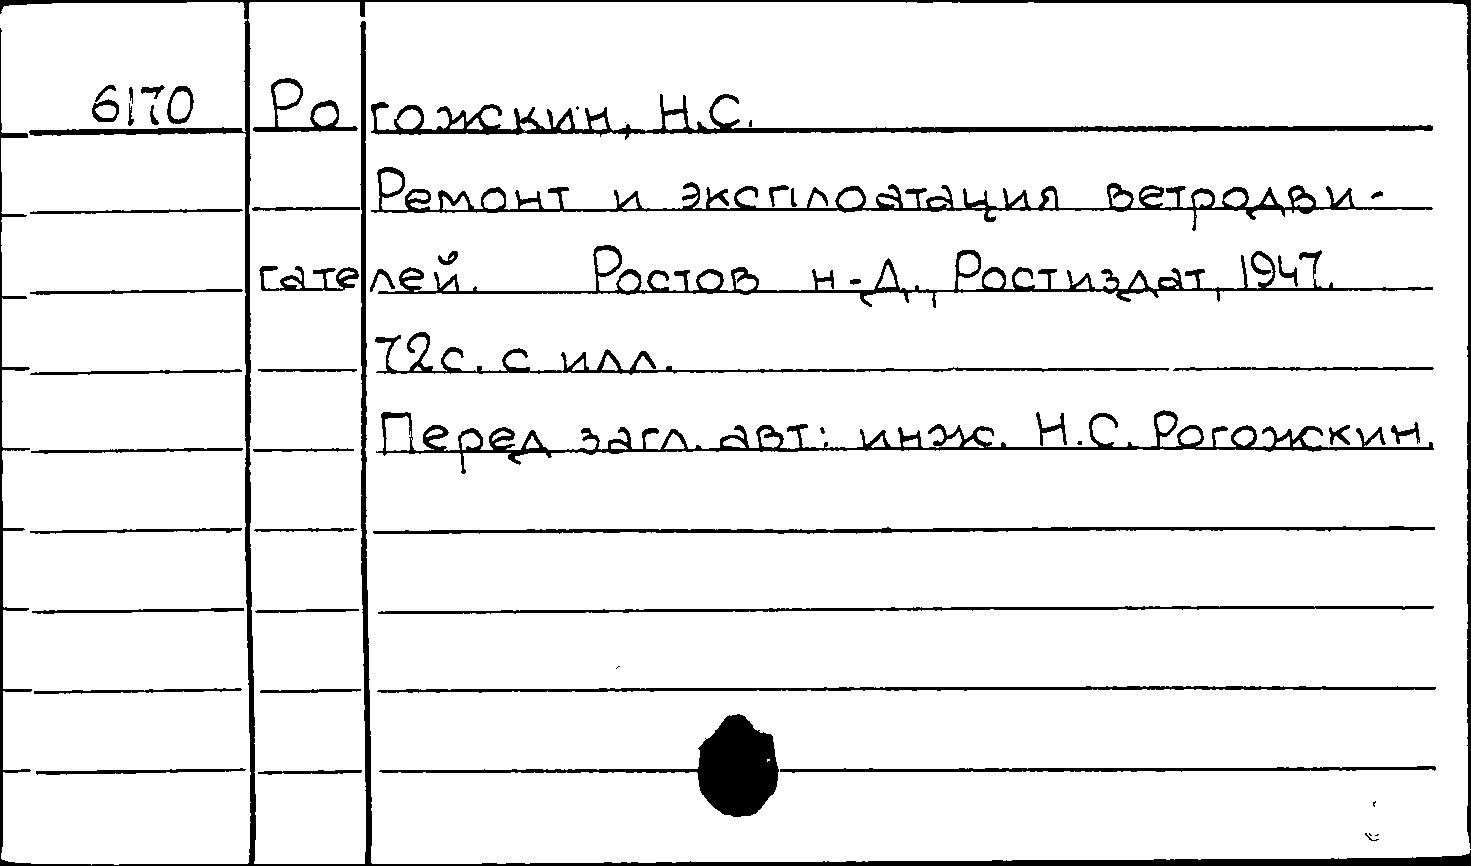 6170 Рогожскин, Н.С.
Ремонт и эксплоатация ветродви-
гателей. Ростов н-Д., Ростиздат, 1947.
72с. с илл.
Перед загл. авт: инж. Н.С. Рогожскин.